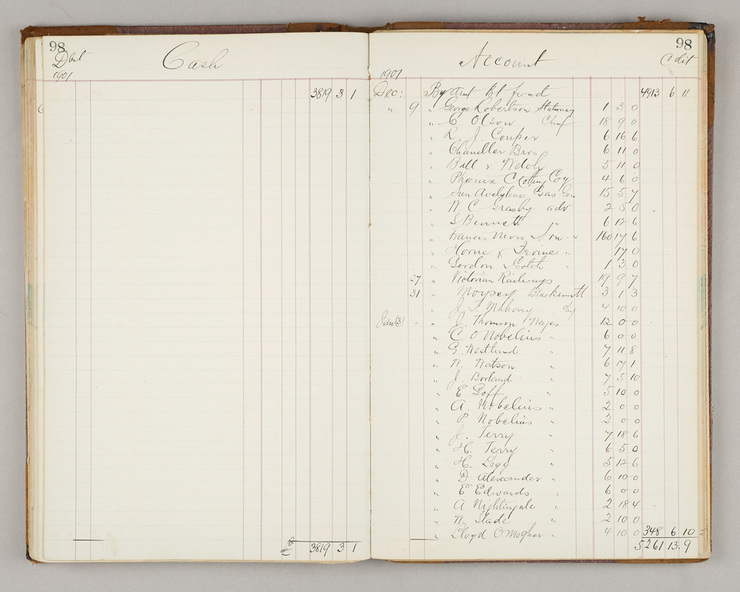 98
Debt
Cash
1901
3819 3 1
3819 3 1
98
Account
Cdit
1901
Dec: By Amt Bt fwd 4913 6 11
" 9 " George Robertson Stationery 1 3 0
" C. Olson Chaf 18 9 0
" R. J. Couper 6 16 6
" Chandler Bros 6 11 0
" Ball & 5 11 0
" Phoenix Clothing Coy 4 6 0
" Acetylene Gas Co 15 5 7
" N. C. Grasby adv 2 5 0
" S Bennett " 6 12 6
" Francis Mon & Son " 160 17 6
" Horne & " 17 0
" Gordon & Gotch " 1 3 0
" Victorian Railways 19 9 7
31 " Blacksmith 3 1 3
" J. Mahony 4 10 0
" J. Thomson Wages 12 0 0
" C. O. Nobelius " 6 0 0
" G. Westlund " 7 11 8
" W. Watson " 6 17 1
" J. Borland " 7 5 10
" E Goff " 5 10 0
" A. Nobelius " 2 0 0
" P. Nobelius " 2 0 0
" J. Terry " 7 18 6
" H. Terry " 6 5 0
" H. Legg " 5 12 6
" D. Alexander " 6 10 0
" E Edwards " 6 0 0
" A Nightingale " 2 18 4
" N. Slade " 2 10 0
" Lloyd O'Meagher " 4 10 0 348 6 10
5261 13 9